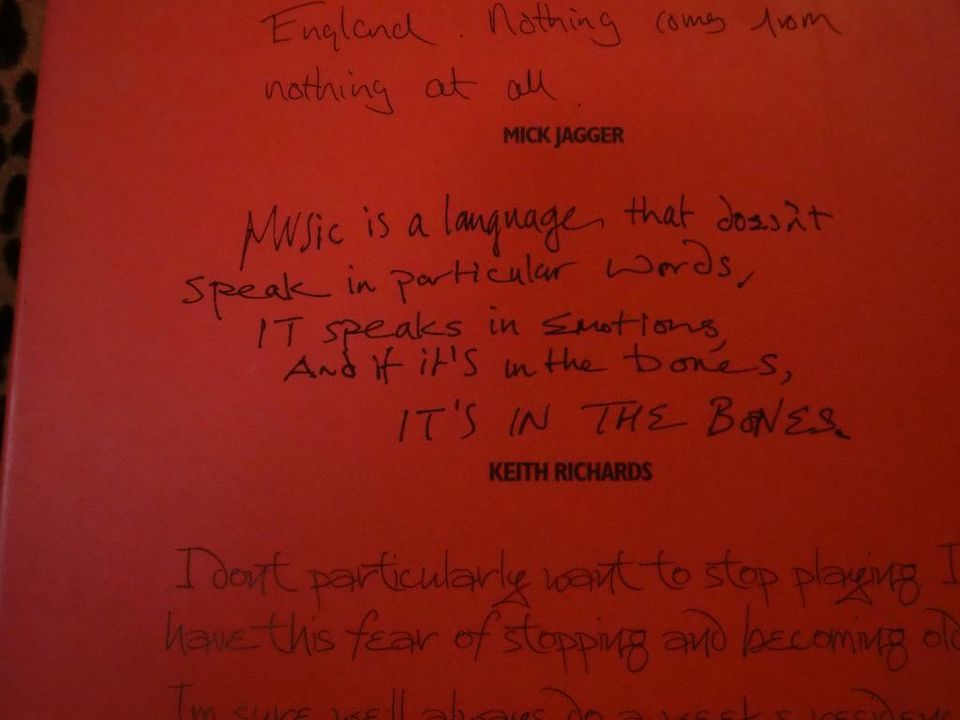 England. Nothing comes from
nothing at all.
MICK JAGGER
Music is a language, that doesn't
speak in particular words,
IT speaks in Emotions,
And if it's in the bones,
IT'S IN THE BONES.
KEITH RICHARDS
I don't particularly want to stop playing I
have this fear of stopping and becoming old
I'm sure we'll always do a week's